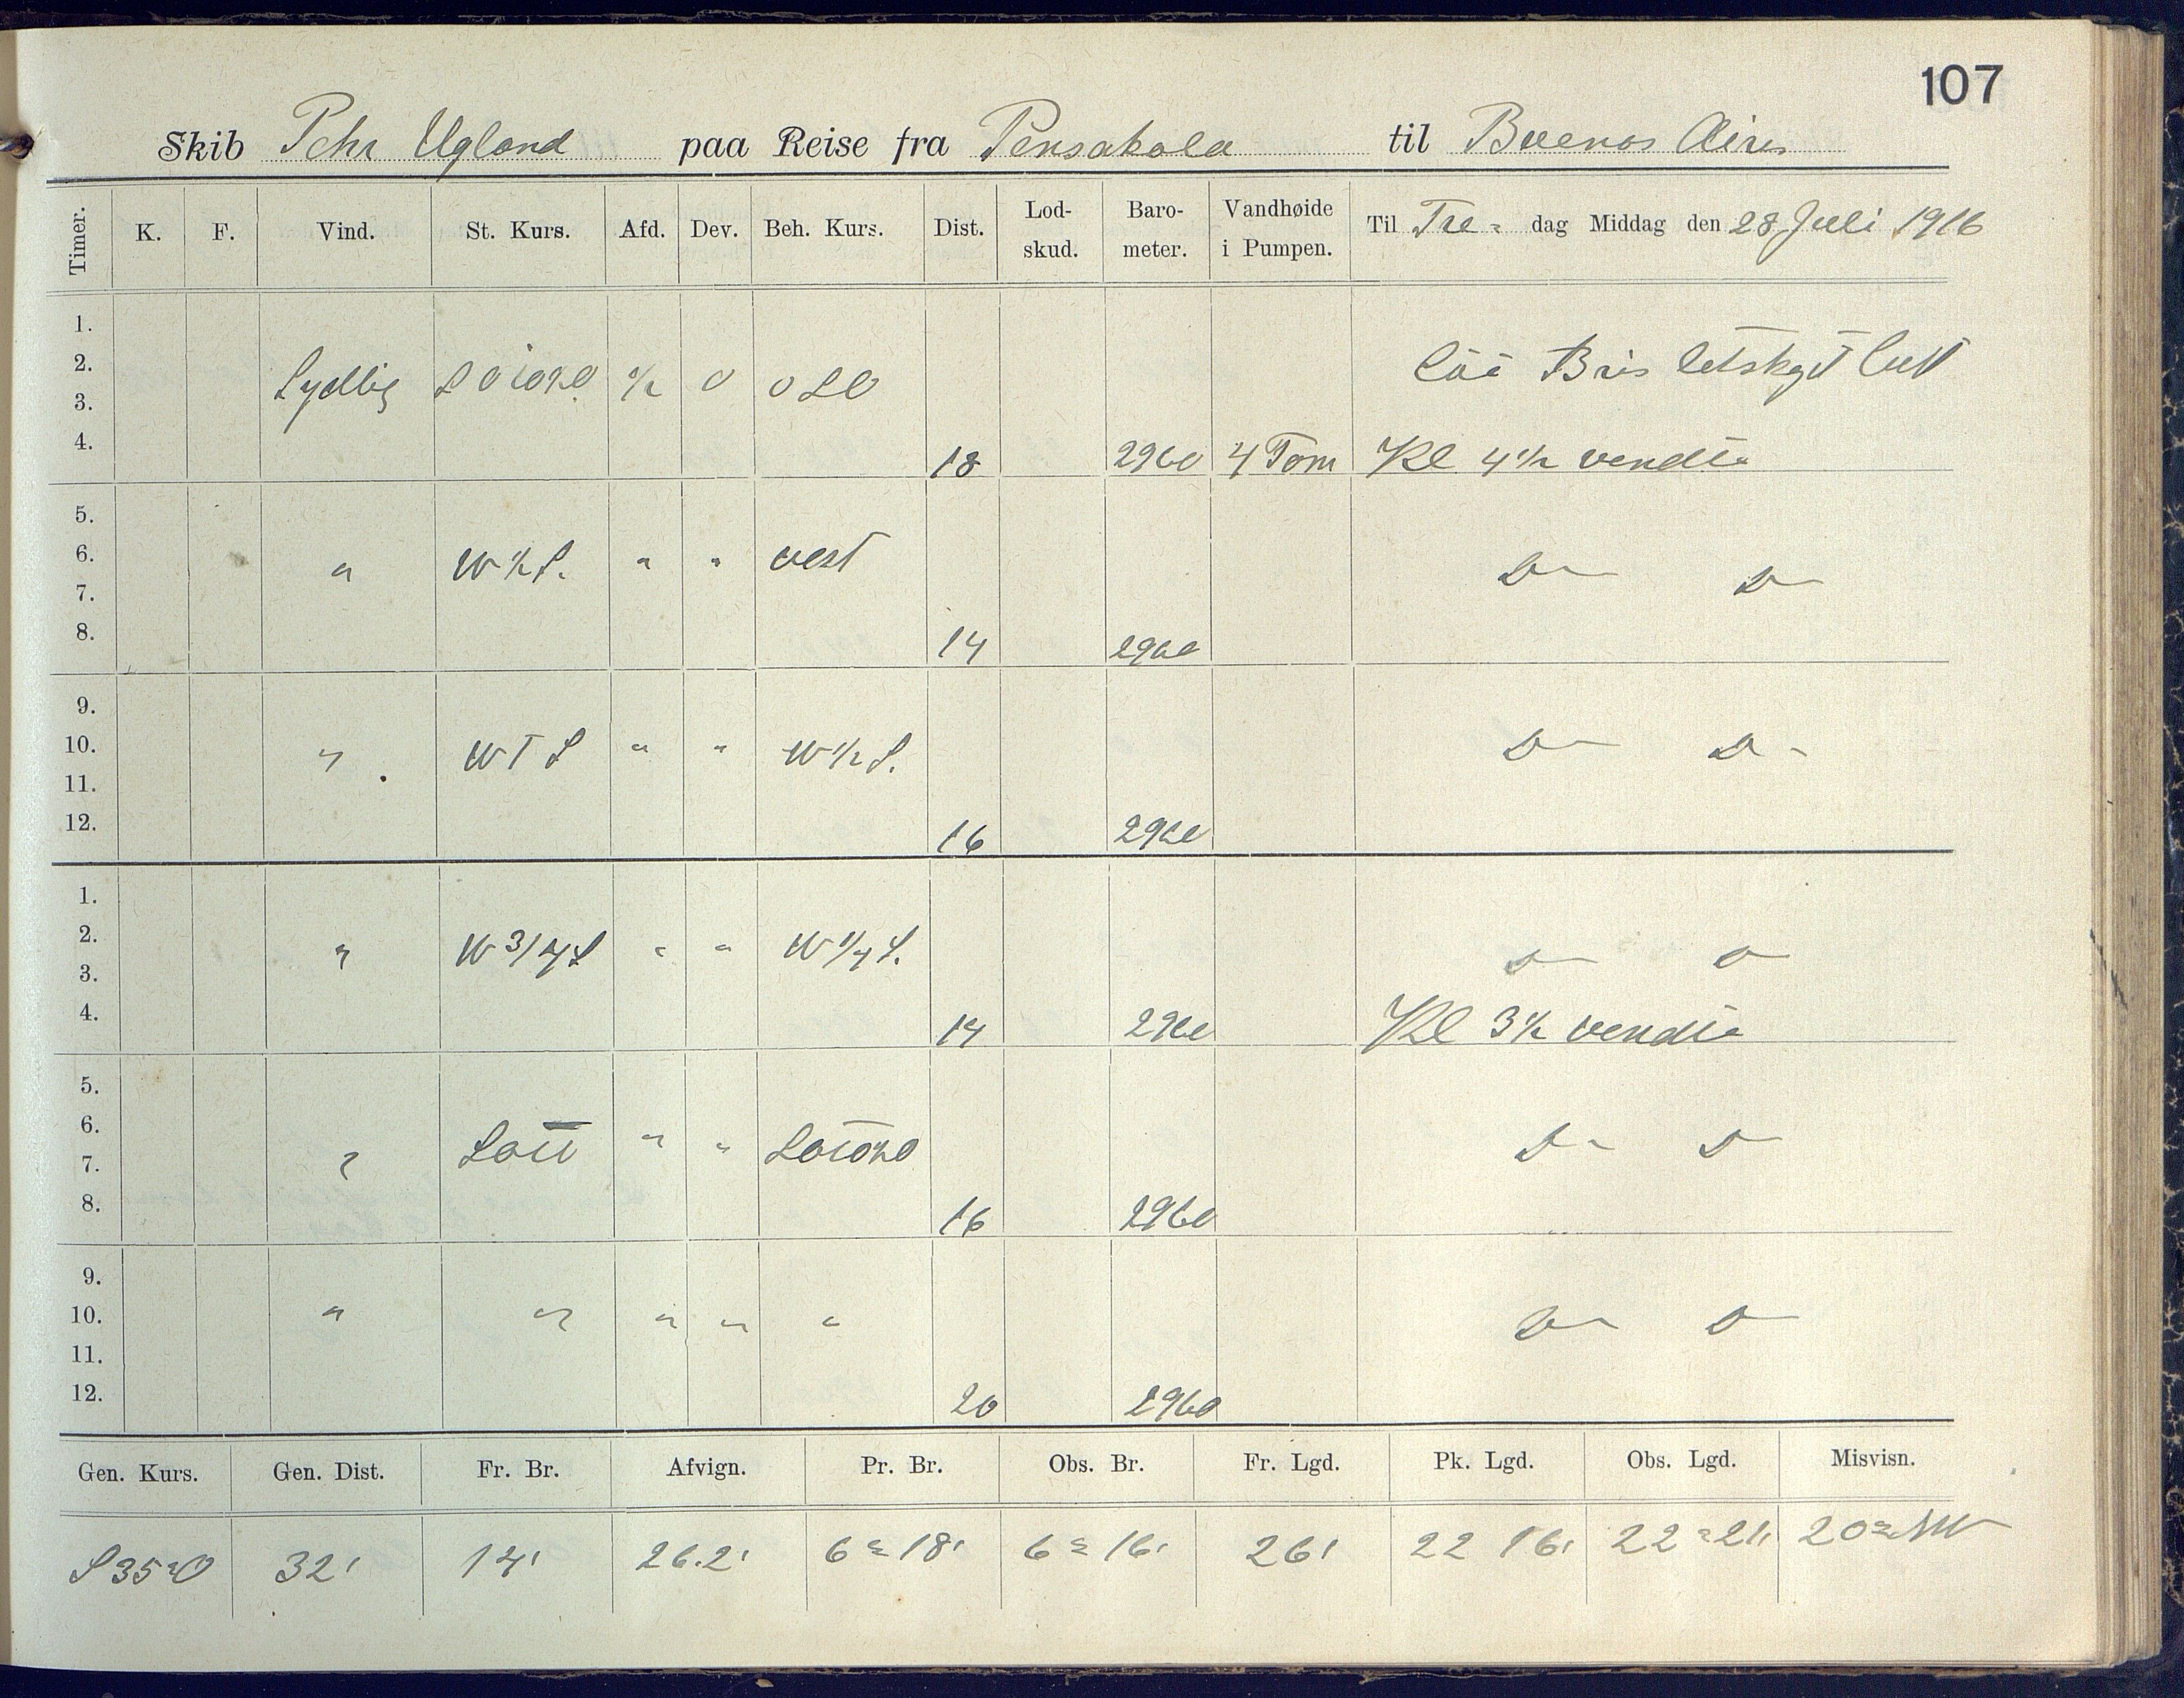 107
Skib Pehr Ugland paa Reise fra Pensakola til Buenos Aires
Timer. K. F. Vind. St. Kurs. Afd. Dev. Beh. Kurs. Dist. Lod-skud. Baro-meter. Vandhøide i Pumpen. Til Fre- dag Middag den 28 Juli 1916
1.
2. Sydlig 1/2 0 OSO Bris letskyet luft
3.
4. 18 2960 4 Tom Kl 4 1/2 vendte
5.
6. " W 1/2 S. " " vest D D
7.
8. 14 2960
9.
10. " W T S " " W 1/2 S. D D
11.
12. 16 2960
1.
2. " W 3/4 S " " W 1/4 S. D D
3.
4. 14 2960 Kl 3 1/2 vendte
5.
6. " " " D D
7.
8. 16 2960
9.
10. " " " " " D D
11.
12. 20 2960
Gen. Kurs. Gen. Dist. Fr. Br. Afvign. Pr. Br. Obs. Br. Fr. Lgd. Pk. Lgd. Obs. Lgd. Misvisn.
S 35° O 32' 26.2' 6° 18' 6° 16' 26' 22 16' 22° 21' 20° NW